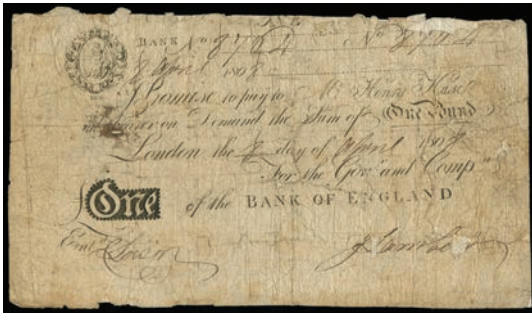 BANK No 8764 No 8764
8 April 1809
I Promise to pay to Mr Henry Hase
or Bearer on Demand the Sum of One Pound
London the 8 day of April 1809
For the Govr and Compa
One of the BANK OF ENGLAND
Entd